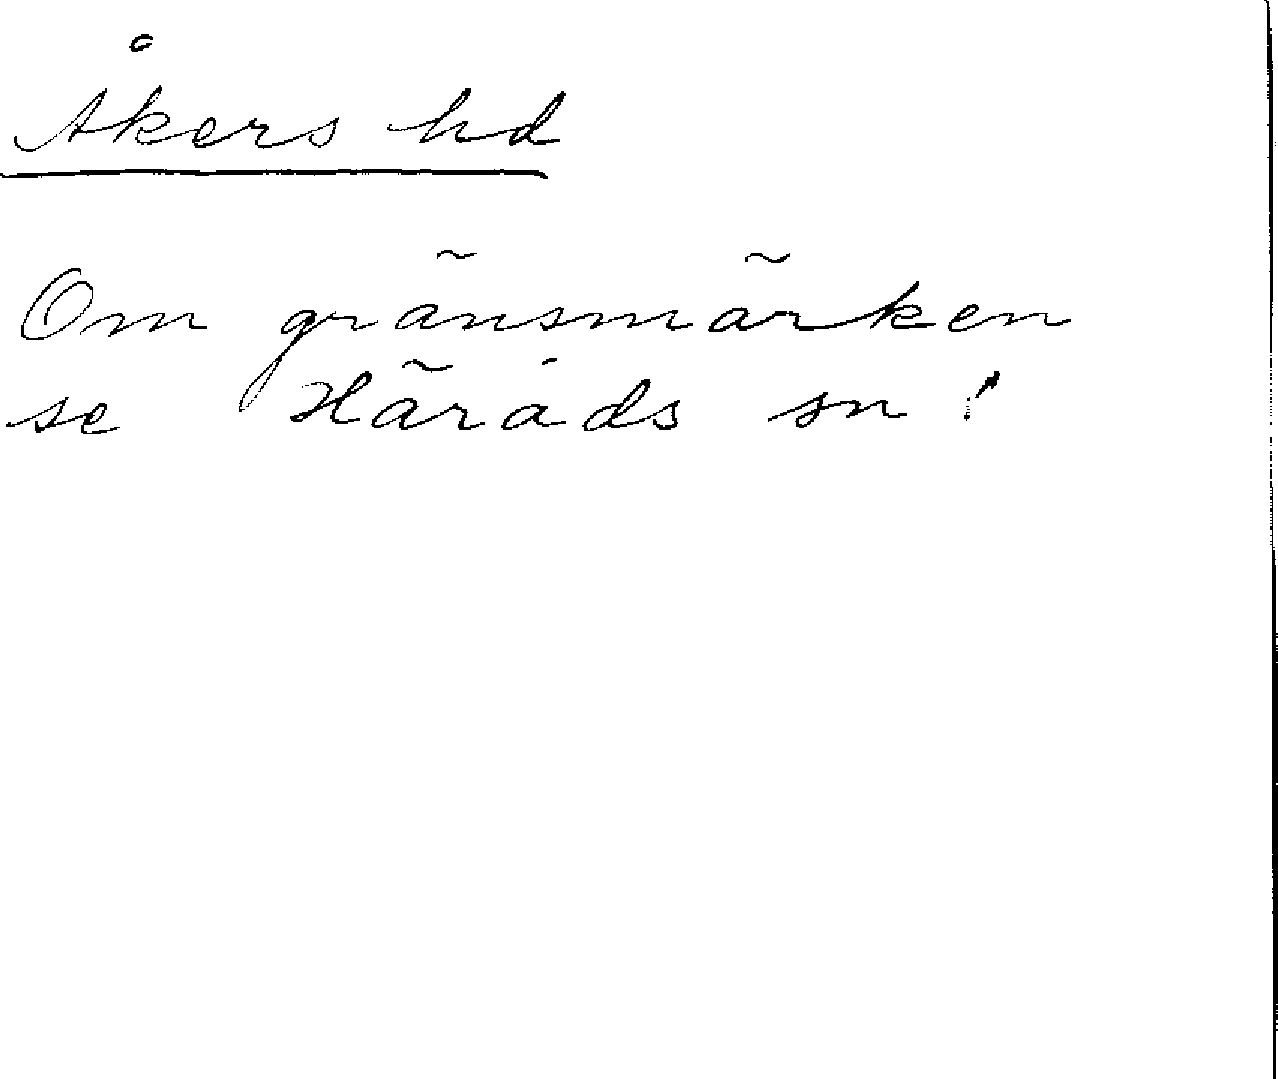 Åkers hd
Om gränsmärken
se Häräds sn!